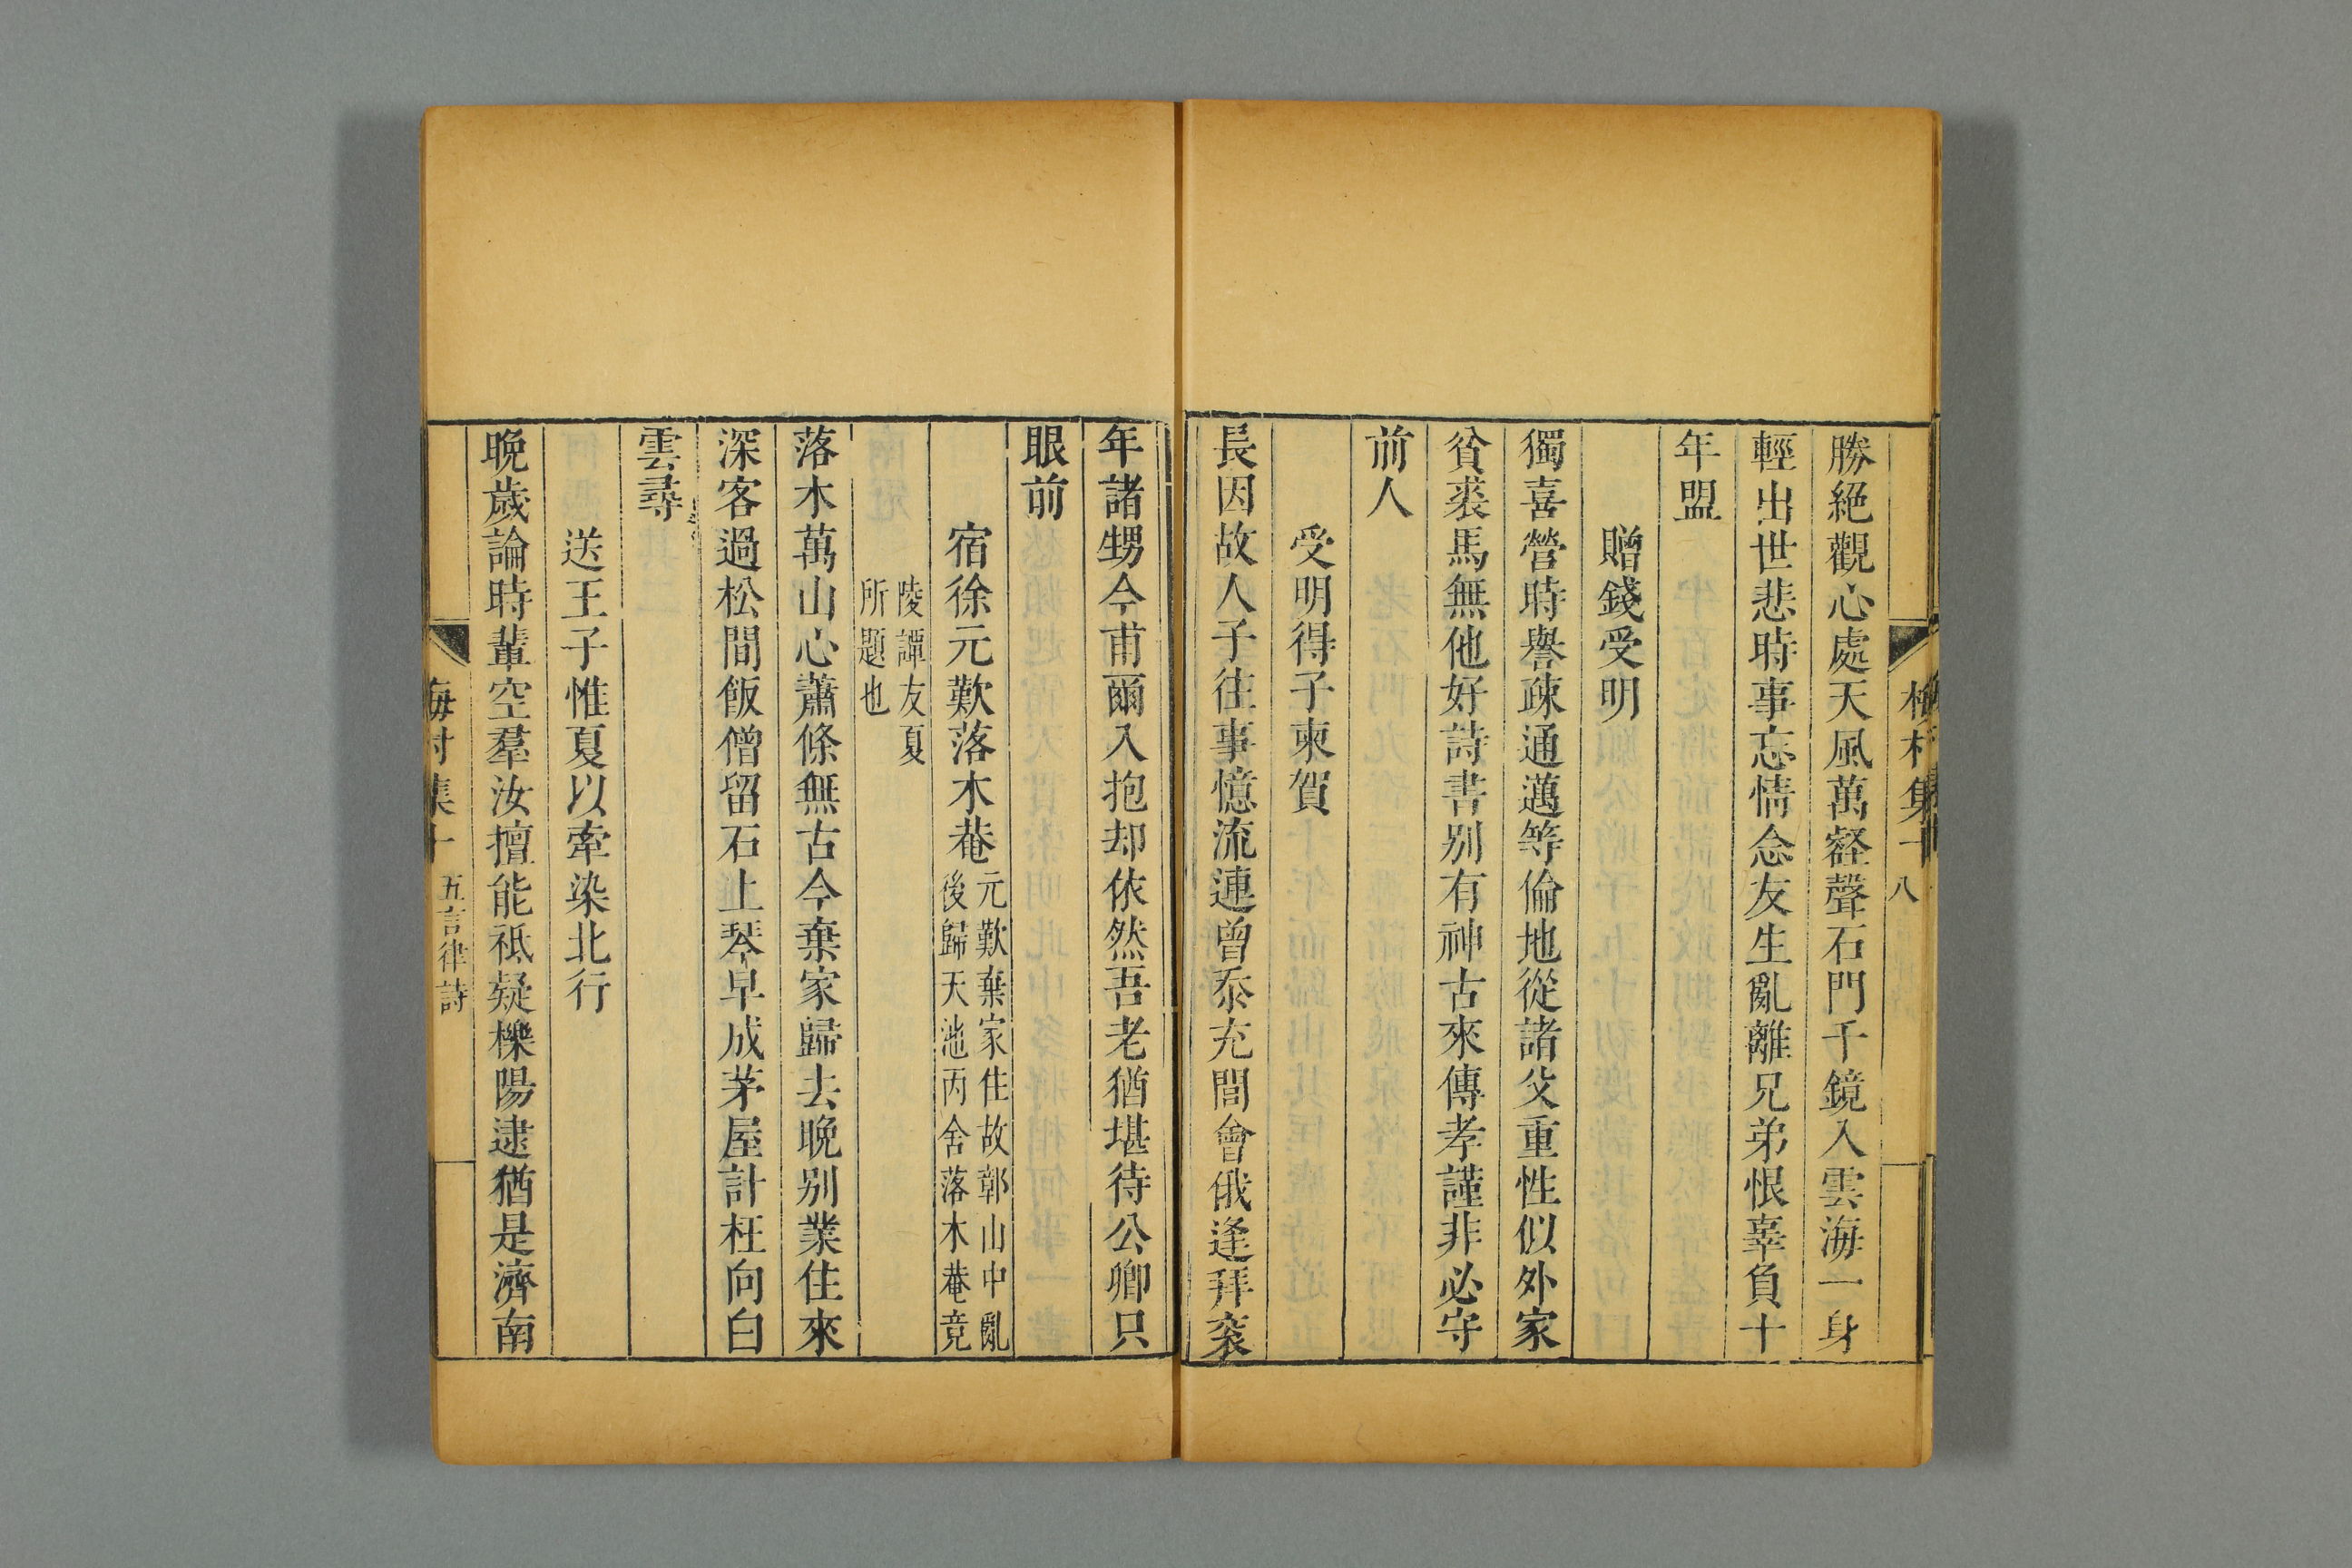 八
勝絕觀心處天風萬壑聲石門千鏡入雲海一身
輕出世悲時事忘情念友生亂離兄弟恨辜負十
年盟
贈錢受明
獨喜營時譽疎通邁等倫地從諸父重性似外家
貧裘馬無他好詩書别有神古來傳孝謹非必守
前人
受明得子柬賀
長因故人子往事憶流連曾忝充閭會俄逢拜衮
年諸甥今甫爾入抱却依然吾老猶堪待公卿只
眼前
宿徐元歎落木菴元歎棄家住故鄣山中亂
後歸天池丙舍落木菴竟
陵譚友夏
所題也
落木萬山心蕭條無古今棄家歸去晚别業住來
深客過松間飯僧留石上琴早成茅屋計枉向白
雲尋
送王子惟夏以牽染北行
晚歲論時輩空羣汝擅能祗疑櫟陽逮猶是濟南
梅村集十 五言律詩